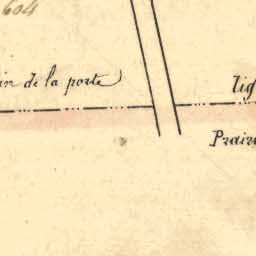 604
in de la porte
lig
Prair